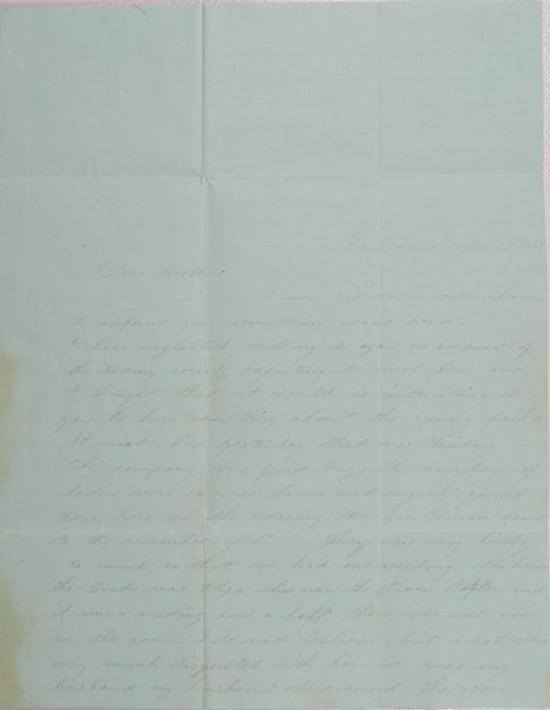 Dear Brother
I now sit down with pleasure
to inform you something about home.
I have neglected writing to you on account of
the sewing society expecting to meet here and
I thought that it would be interesting to
you to here something about the young folks
It met here yesterday that was Friday
The company was quite large the number of
ladies were and myself joined
them here in the evening the gentlemen came
to the number of They were very lively
so much so that we had one wedding
the bride was Eliza Sherman the Groom and
it was a wedding and a half there was not one
in the room I do not believe but what was
very much disgusted with her it was my
husband my husband all around the room